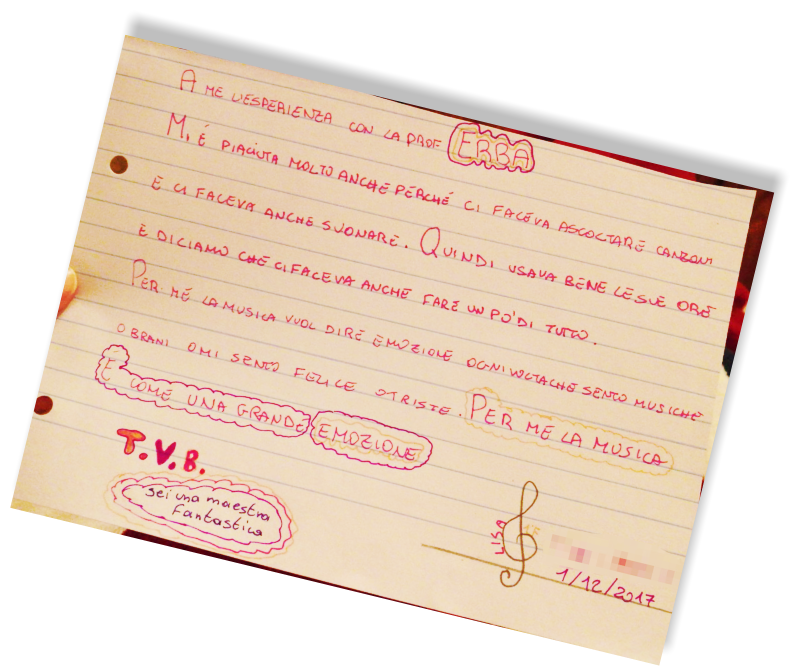 A ME L'ESPERIENZA CON LA PROF ERBA
MI È PIACIUTA MOLTO ANCHE PERCHÉ CI FACEVA ASCOLTARE CANZONI
E CI FACEVA ANCHE SUONARE. QUINDI USAVA BENE LE SUE ORE
E DICIAMO CHE CI FACEVA ANCHE FARE UN PO' DI TUTTO.
PER ME LA MUSICA VUOL DIRE EMOZIONE OGNI VOLTA CHE SENTO MUSICHE
O BRANI O MI SENTO FELICE O TRISTE. PER ME LA MUSICA
È COME UNA GRANDE EMOZIONE
T.V.B.
sei una maestra
fantastica
LISA
1/12/2017